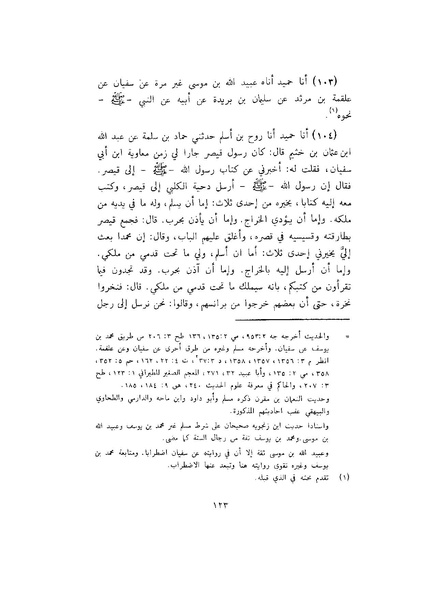 (١٠٣) أنا حميد أناه عبيد الله بن موسى غير مرة عن سفيان عن
علقمة بن مرثد عن سليمان بن بريدة عن أبيه عن النبي – ﷺ –
نحوه(١).
(١٠٤) أنا حميد أنا روح بن أسلم حدثني حماد بن سلمة عن عبد الله
ابن عثمان بن خثيم قال: كان رسول قيصر جارا لي زمن معاوية ابن أبي
سفيان، فقلت له: أخبرني عن كتاب رسول الله – ﷺ – إلى قيصر.
فقال إن رسول الله – ﷺ – أرسل دحية الكلبي إلى قيصر، وكتب
معه إليه كتابا، يخيره من إحدى ثلاث: إما أن يسلم، وله ما في يديه من
ملكه. وإما أن يؤدي الخراج. وإما أن يأذن بحرب. قال: فجمع قيصر
بطارقته وقسيسيه في قصره، وأغلق عليهم الباب، وقال: إن محمدا بعث
إليّ يخيرني إحدى ثلاث: أما ان أسلم، ولي ما تحت قدمي من ملكي.
وإما أن أرسل إليه بالخراج. وإما أن آذن بحرب. وقد تجدون فيما
تقرأون من كتبكم، بانه سيملك ما تحت قدمي من ملكي. قال: فنخروا
نخرة، حتى أن بعضهم خرجوا من برانسهم، وقالوا: نحن نرسل إلى رجل
= والحديث أخرجه جه ٩٥٣:٢، مي ١٣٥:٢، ١٣٦ طح ٣: ٢٠٦ من طريق محمد بن
يوسف عن سفيان. وأخرجه مسلم وغيره من طرق أخرى عن سفيان وعن علقمة.
انظر م ٣: ١٣٥٦، ١٣٥٧، ١٣٥٨، د ٣: ٣٧، ت ٤: ٢٢، ١٦٢، حم ٥: ٣٥٢،
٣٥٨، مي ٢: ١٣٥، وأبا عبيد ٣٢، ٢٧١، المعجم الصغير للطبراني ١: ١٢٣، طح
٣: ٢٠٧، والحاكم في معرفة علوم الحديث ٢٤٠، هق ٩: ١٨٤، ١٨٥.
وحديث النعمان بن مقرن ذكره مسلم وأبو داود وابن ماجه والدارمي والطحاوي
والبيهقي عقب أحاديثهم المذكورة.
واسنادا حديث ابن زنجويه صحيحان على شرط مسلم غير محمد بن يوسف وعبيد الله
بن موسى. ومحمد بن يوسف ثقة من رجال الستة كما مضى.
وعبيد الله بن موسى ثقة إلا أن في روايته عن سفيان اضطرابا. ومتابعة محمد بن
يوسف وغيره تقوى روايته هنا وتبعد عنها الاضطراب.
(١) تقدم بحثه في الذي قبله.
١٢٣